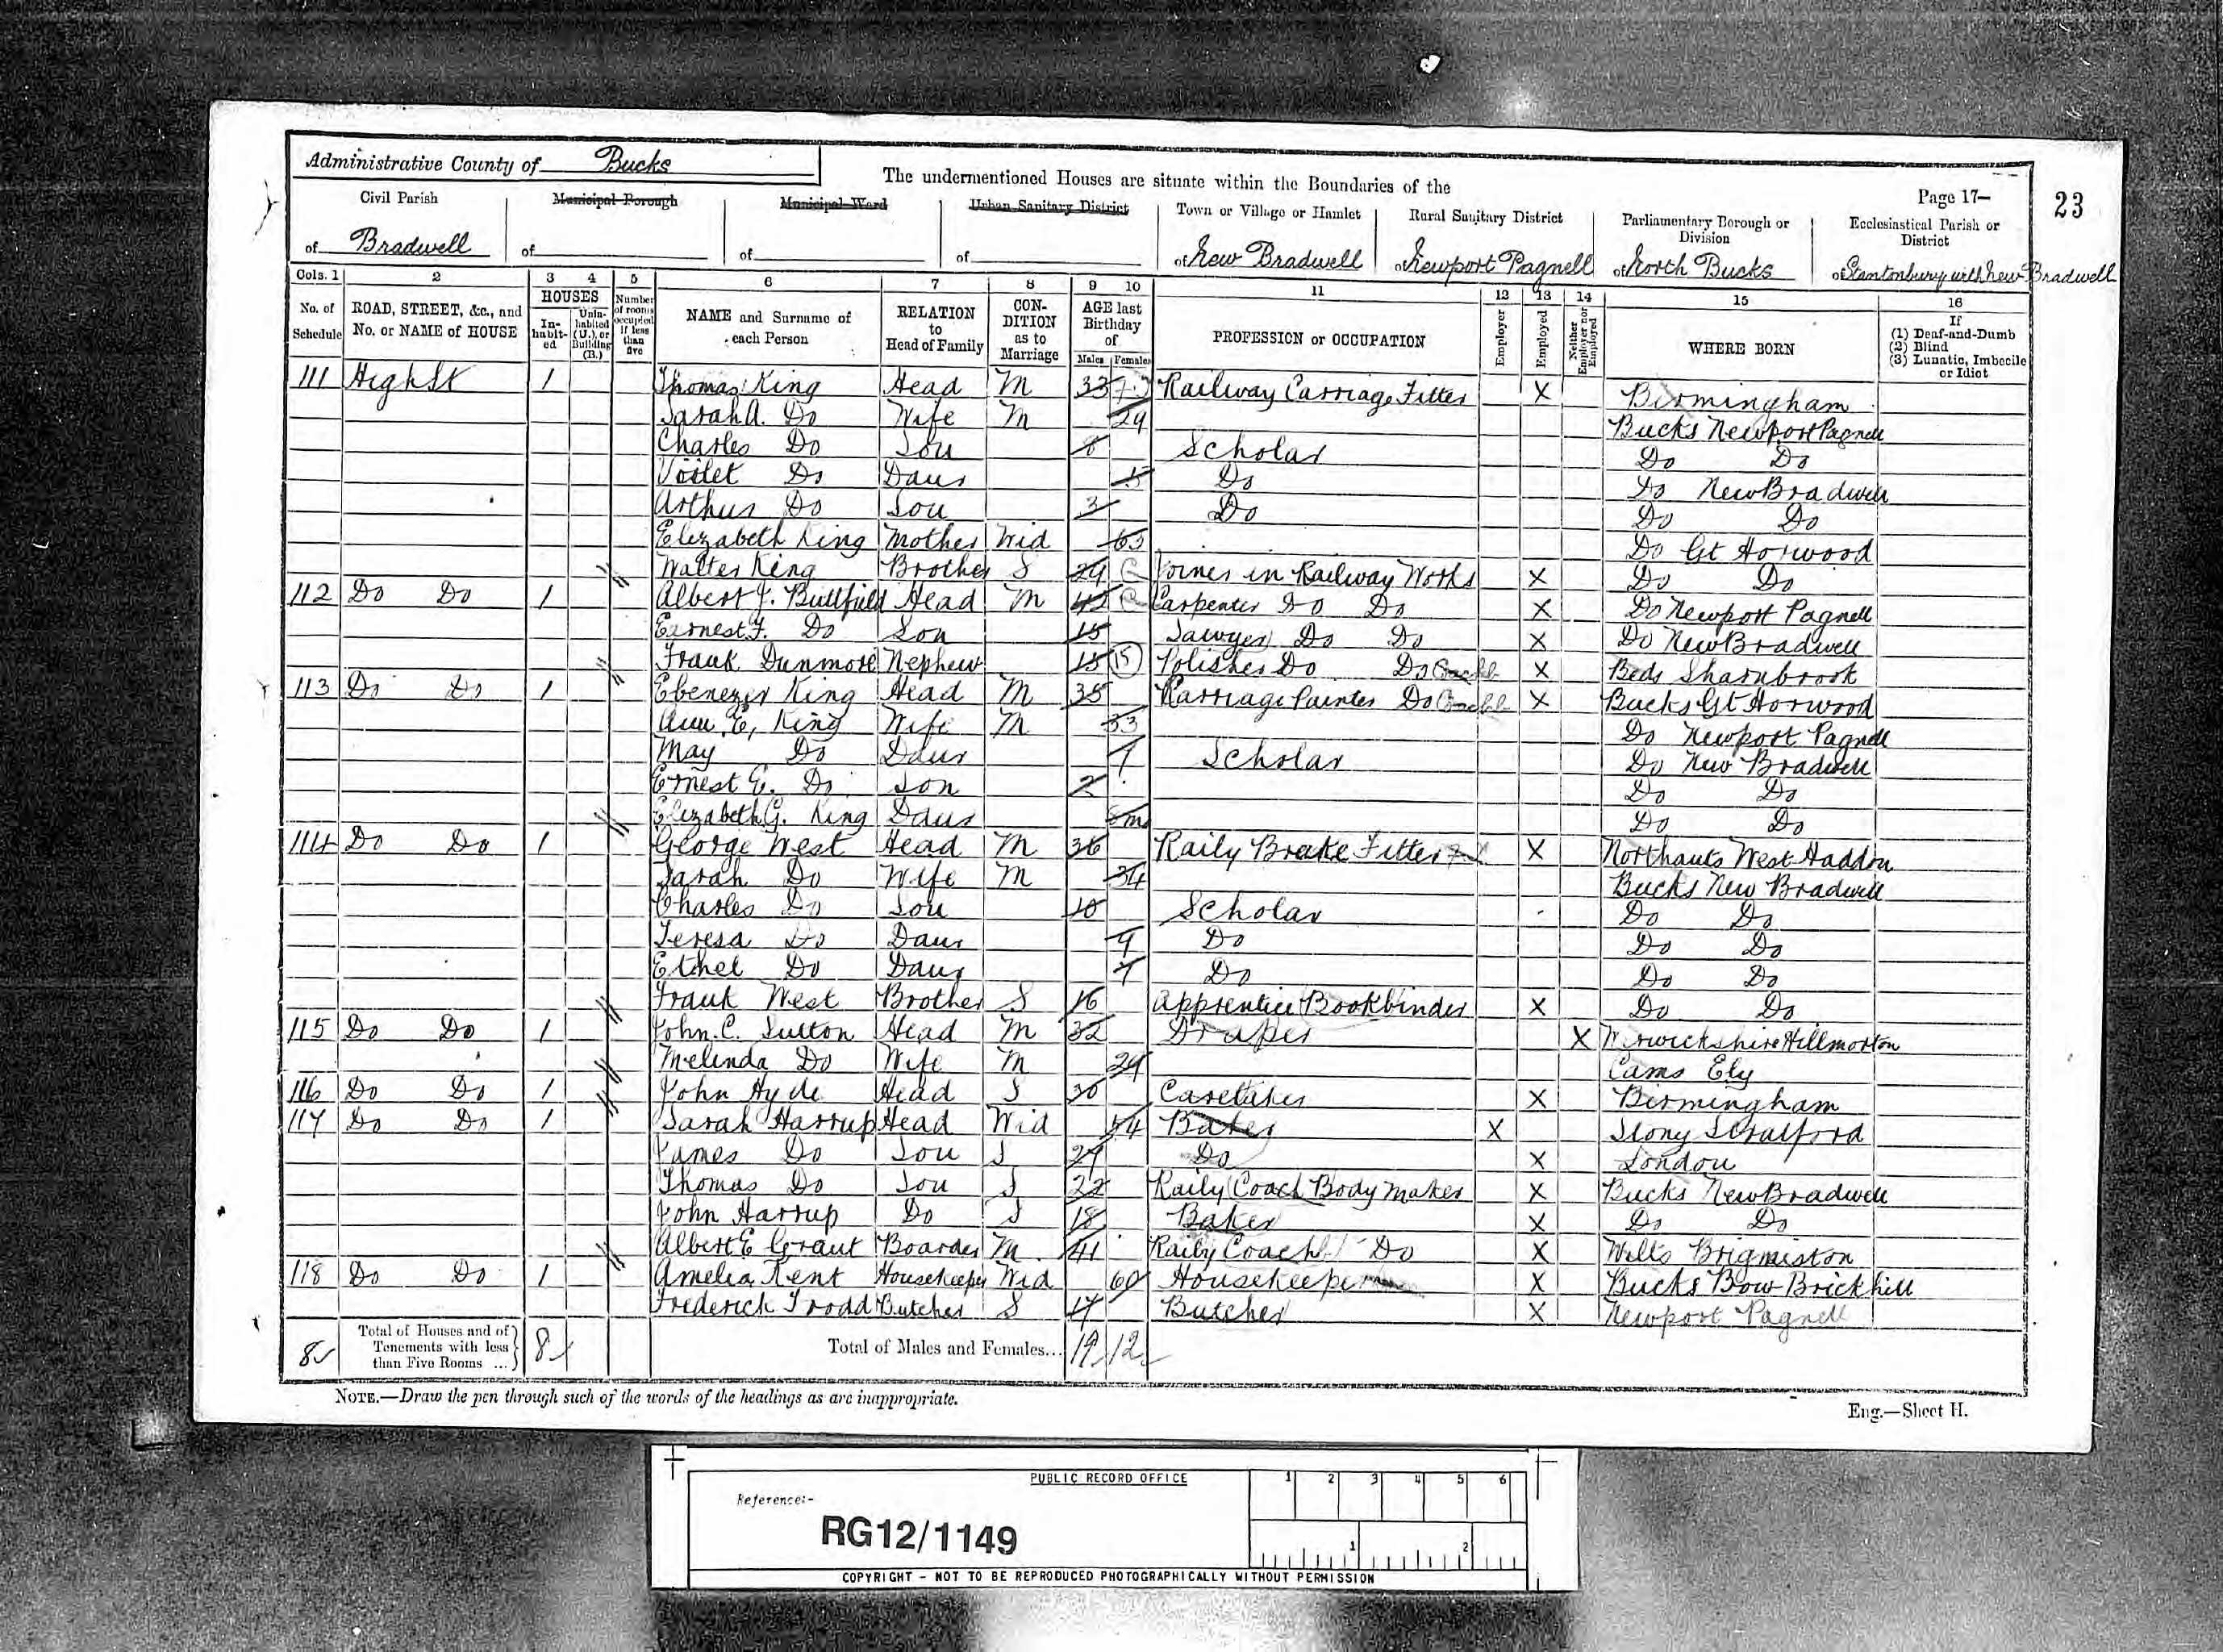 Administrative County of Bucks
The undermentioned Houses are situate within the Boundaries of the
Page 17
23
Civil Parish of Bradwell
Municipal Borough of
Municipal Ward of
Urban Sanitary District of
Town or Village or Hamlet of New Bradwell
Rural Sanitary District of Newport Pagnell
Parliamentary Borough or Division of North Bucks
Ecclesiastical Parish or District of Stantonbury with New Bradwell
Cols. 1 2 3 4 5 6 7 8 9 10 11 12 13 14 15 16
No. of Schedule
ROAD, STREET, &c., and No. or NAME of HOUSE
HOUSES
In-habit-ed
Unin-habited (U.), or Building (B.)
Number of rooms occupied if less than five
NAME and Surname of each Person
RELATION to Head of Family
CON-DITION as to Marriage
AGE last Birthday of
Males Females
PROFESSION or OCCUPATION
Employer
Employed
Neither Employer nor Employed
WHERE BORN
If (1) Deaf-and-Dumb (2) Blind (3) Lunatic, Imbecile or Idiot
111 High St 1 Thomas King Head M 33 Railway Carriage Fitter X Birmingham
Sarah A. Do Wife M 29 Bucks Newport Pagnell
Charles Do Son 8 Scholar Do Do
Voilet Do Daur 5 Do Do New Bradwell
Arthur Do Son 3 Do Do Do
Elizabeth King Mother Wid 63 Do Gt Horwood
Walter King Brother S 24 Joiner in Railway Works X Do Do
112 Do Do 1 Albert J. Bullfield Head M 42 Carpenter Do Do X Do Newport Pagnell
Earnest F. Do Son 15 Sawyer Do Do X Do New Bradwell
Frank Dunmore Nephew 15 (15) Polisher Do Do X Beds Sharnbrook
113 Do Do 1 Ebenezer King Head M 35 Karriage Painter Do X Bucks Gt Horwood
Ann. E, King Wife M 33 Do Newport Pagnell
May Do Daur 7 Scholar Do New Bradwell
Ernest E. Do Son 2 Do Do
Elizabeth G. King Daur 8m Do Do
114 Do Do 1 George West Head M 36 Raily Brake Fitter X Northants West Haddon
Sarah Do Wife M 34 Bucks New Bradwell
Charles Do Son 10 Scholar Do Do
Teresa Do Daur 9 Do Do Do
Ethel Do Daur 7 Do Do Do
Frank West Brother S 16 Apprentice Bookbinder X Do Do
115 Do Do 1 John. C. Sutton Head M 32 Draper X Warwickshire Hillmorton
Melinda Do Wife M 29 Cams Ely
116 Do Do 1 John Hyde Head S 30 Caretaker X Birmingham
117 Do Do 1 Sarah Harrup Head Wid 54 Baker X Stony Stratford
James Do Son S 27 Do X London
Thomas Do Son S 22 Raily Coach Body Maker X Bucks New Bradwell
John Harrup Do S 18 Baker X Do Do
Albert E Grant Boarder M 41 Raily Coach Do X Wilts Brigmiston
118 Do Do 1 Amelia Kent Housekeeper Wid 60 Housekeeper X Bucks Bow Brickhill
Frederick Trodd Butcher S 17 Butcher X Newport Pagnell
8 Total of Houses and of Tenements with less than Five Rooms ... 8 Total of Males and Females... 19 12
NOTE.—Draw the pen through such of the words of the headings as are inappropriate.
Eng.—Sheet H.
PUBLIC RECORD OFFICE
1 2 3 4 5 6
Reference:-
RG12/1149
1 2
COPYRIGHT - NOT TO BE REPRODUCED PHOTOGRAPHICALLY WITHOUT PERMISSION